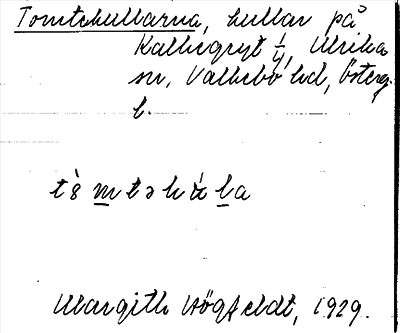 Tomtekullarna, kullar på
Kallingryt 1/4, Ulrika
sn, Valkebo hd, Österg.
l.
Margith Högfeldt, 1929.